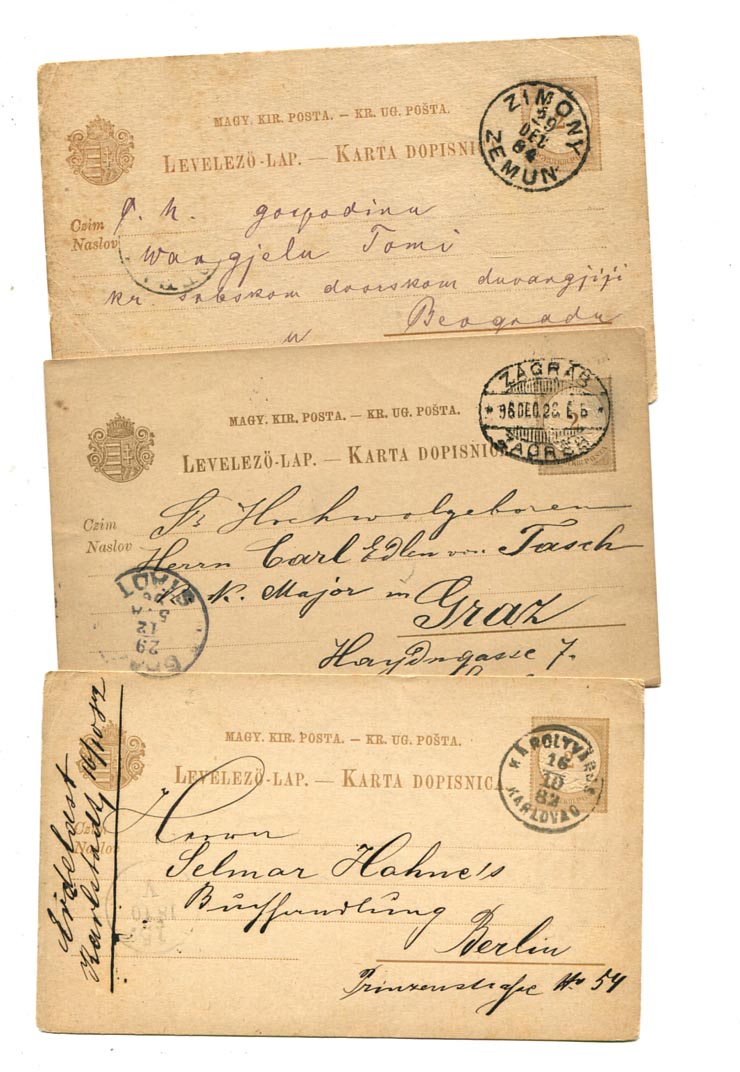 MAGY. KIR. POSTA. — KR. UG. POŠTA.
LEVELEZŐ-LAP. — KARTA DOPISNI
ZIMONY
29
DEZ
84
ZEMUN
Czim
Naslov
P. n. gospodinu
Waangjelu Tomi
kr. srbskom dvorskom duvangjiji
u Beogradu
MAGY. KIR. POSTA. — KR. UG. POŠTA.
LEVELEZŐ-LAP. — KARTA DOPISNIC
ZÁGRÁB
* 96 DEC. 28. *
ZAGREB
2
Czim
Naslov
Sr Hochwolgeboren
Herrn Carl Edlen von Tasch
k. k. Major in
Graz
Haydngasse 7.
29
12
MAGY. KIR. POSTA. — KR. UG. POŠTA.
LEVELEZŐ-LAP. — KARTA DOPISNICA
KÁROLYVÁROS
16
10
82
KARLOVAC
Czim
Naslov
Karlstadt
Herrn
Selmar Hahne's
Buchhandlung
Berlin
Prinzenstraße No 54